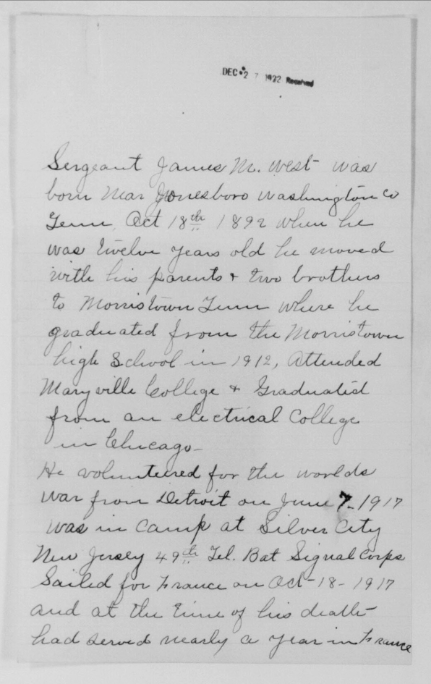 DEC 27 1922 Received
Sergeant James M. West was
born near Jonesboro Washington Co
Tenn, Oct 18th 1892 when he
was twelve years old he moved
with his parents + two brothers
to Morristown Tenn where he
graduated from the Morristown
high School in 1912, Attended
Maryville College + Graduated
from an electrical College
in Chicago-
He volunteered for the worlds
war from Detroit on June 7. 1917
was in camp at Silver City
New Jersey 49th Tel. Bat Signal Corps
Sailed for France on Oct-18-1917
and at the time of his death-
had served nearly a year in France